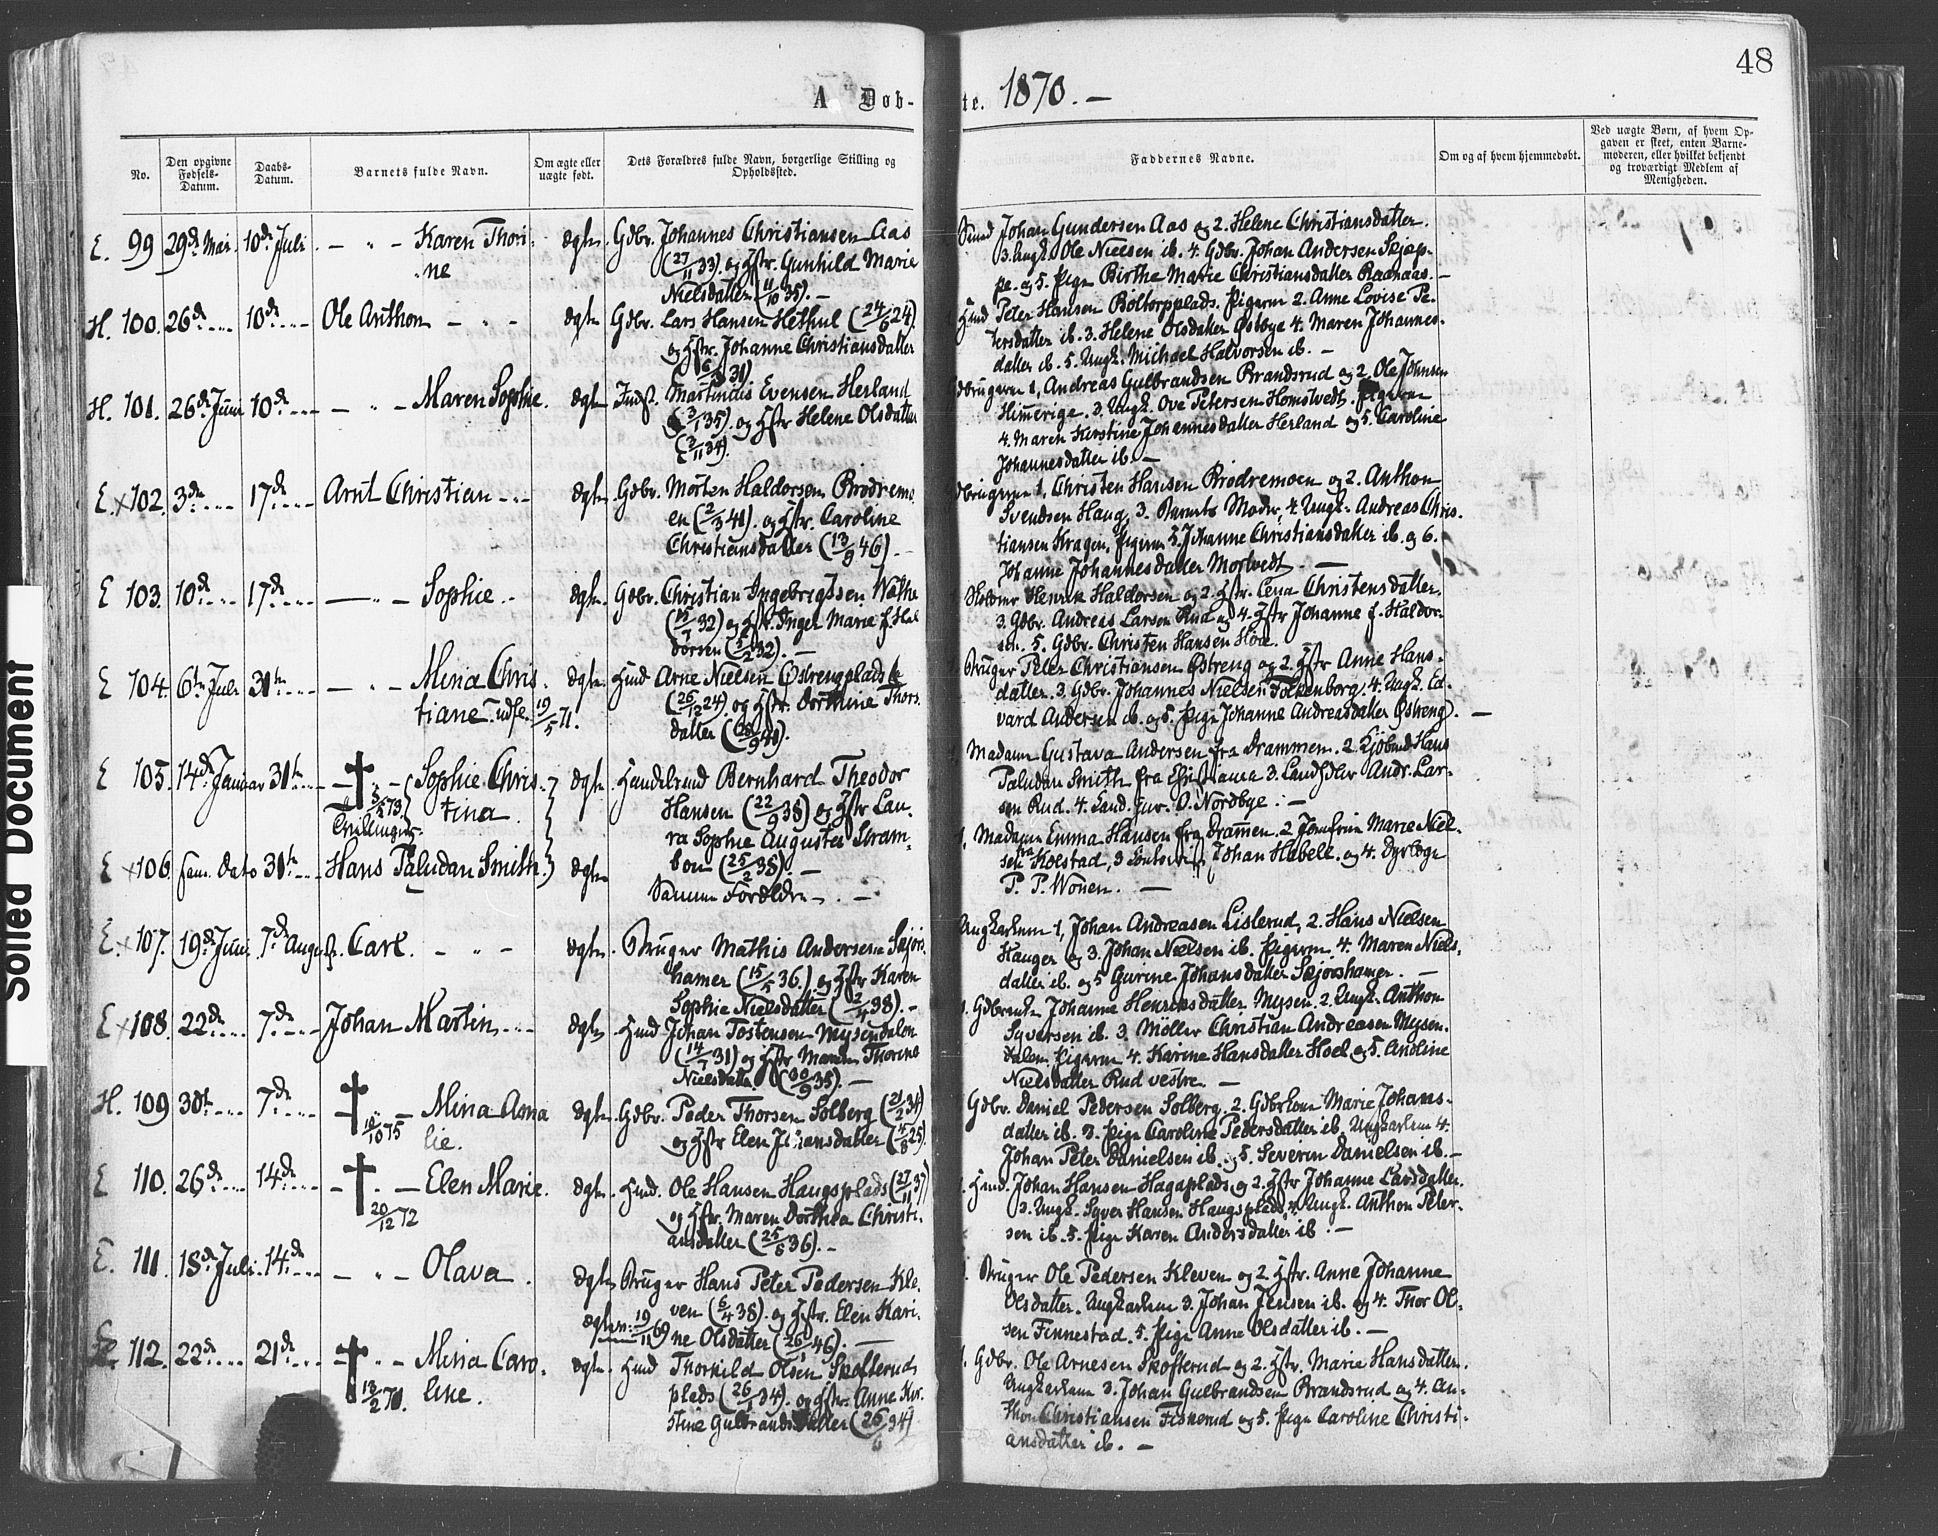 48
A Døb-
te. 1870. —
No.
Den opgivne Fødsels-Datum.
Daabs-Datum.
Barnets fulde Navn.
Om ægte eller uægte født.
Dets Forældres fulde Navn, borgerlige Stilling og Opholdssted.
Faddernes Navne.
Om og af hvem hjemmedøbt.
Ved uægte Børn, af hvem Opgaven er skeet, enten Barnemoderen, eller hvilket bekjendt og troværdigt Medlem af Menigheden.
E. 99 29de Mai 10de Juli — " — Karen Thori- ægte. Gdbr. Johannes Christiansen Aas
ne (27/11 33) og Hstr. Gunhild Marie
Nielsdatter (11/10 35). —
Johan Gundersen Aas og 2. Helene Christiansdatter.
3. Ungk. Ole Nielsen ib. 4. Gdbr. Johan Andersen Skjøp-
pe og 5. Pige Birthe Marie Christiansdatter Raanaas. —
H. 100. 26de 10de Ole Anthon — " — ægte Gdbr. Lars Hansen Hethul (24/6 24).
og Hstr. Johanne Christiansdatter
31)
Peter Hansen Boltorpplads. Pigerne 2. Anne Lovise Pe-
tersdatter ib. 3. Helene Olsdatter Østbye 4. Maren Johannes-
datter ib. 5. Ungk. Michael Halvorsen ib. —
H. 101. 26de Juni 10de — " — Maren Sophie. ægte Indst. Martindis Evensen Herland
(3/1 35). og Hstr Helene Olsdatter
(2/11 34).
1, Andreas Gulbrandsen Brandsrud og 2. Ole Johnsen
Himerige. 3. Ungk. Ove Petersen Homstvedt. Pigerne
4. Maren Kirstine Johannesdatter Herland og 5. Caroline
Johannesdatter ib. —
E. × 102. 3die 17de Arnt Christian ægte Gdbr. Morten Haldorsen Brødremo-
en (2/3 41). og Hstr. Caroline
Christiansdatter (13/9 46). —
1, Christen Hansen Brødremoen og 2. Anthon
Svendsen Haug, 3. Barnets Moder, 4. Ungk. Andreas Chris-
tiansen Kragen, Pigerne 5. Johanne Christiansdatter ib. og 6.
Johanne Johannesdatter Mortvedt. —
E 103. 10de 17de — " — Sophie. ægte. Gdbr. Christian Ingebrigtsen
(15/7 32) og Hstr. Inger Marie f. Hal
dorsen 32). —
Henrik Haldorsen og 2. Hstr. Lena Christensdatter.
3. Gdbr. Andreas Larsen Rud og 4. Hstr Johanne f. Haldor-
sen. 5. Gdbr. Christen Hansen Hoie.
E 104. 6te Juli 31te — " — Mina Chris- ægte. Hmd Arne Nielsen Østrengplads
tiane. udfl. 19/5 71. (26/2 24) og Hstr. Dorthine Thors-
datter
Bruger Peter Christiansen Østreng og 2. Hstr Anne Hans-
datter. 3. Gdbr. Johannes Nielsen Folkenborg. 4. Ungk. Ed-
vard Andersen ib. og 5. Pige Johanne Andreasdatter Østreng. —
E 105. 14de Januar 31te Sophie Chris- ægte. Handelsmd Bernhard Theodor
tina. Hansen (22/9 38) og Hstr Lau-
Tvillinger ra Sophie Augusta Stram-
Madam Gustava Andersen fra Drammen. 2. Kjøbmd Hans
Paludan Smith fra Christiania 3. Landhdlr Andr. Lar-
sen Rud. 4. Cand. jur. O. Nordbye. —
E × 106. sam. Dato 31te Hans Paludan Smith. ægte boe (25/2 38). —
Samme Forældre. —
Madam Emma Hansen fra Drammen. 2. Jomfru Marie Niel-
sen fra Kolstad, 3 Johan Hubell. og 4. Dyrlæge
P. P. Wonen. —
E. × 107. 19de Juni 7de August. Carl. — " — ægte. Bruger Mathis Andersen Skjørs-
hamer (15/5 36.) og Hstr Karen
Sophie Nielsdatter (2/4 38). —
Ungkarlene 1, Johan Andreasen Lislerud, 2. Hans Nielsen
Hauger og 3. Johan Nielsen ib. Pigerne 4. Maren Niels-
datter ib. og 5 Gurine Johansdatter Skjørshamer. —
E × 108. 22de 7de Johan Martin ægte Hmd Johan Tostensen Mysendalen
(14/7 31) og Hstr Maren Thorine
Nielsdatter (30/9 35). —
1. Gdbrenke Johanne Henriksdatter Mysen. 2. Ungk. Anthon
Syversen ib. 3. Møller Christian Andreasen Mysen-
dalen. Pigerne 4. Karine Hansdatter Hoel og 5. Andine
Nielsdatter Rud vestre. —
H. 109 30te 7de Mina Ama ægte Gdbr. Peder Thorsen Solberg (21/2 34)
10/10 75 lie. og Hstr Elen Johansdatter (4/8 25).
Gdbr. Daniel Pedersen Solberg. 2. Gdbrkone Marie Johans-
datter ib. 3. Pige Caroline Pedersdatter ib. Ungkarlene 4.
Johan Peter Danielsen ib. og 5. Severin Danielsen ib. —
E 110. 26de 14de Elen Marie. ægte Hmd. Ole Hansen Haugsplads (27/11 37)
20/12 72 og Hstr. Maren Dorthea Christi-
ansdatter (25/8 36). —
Hmd. Johan Hansen Hagaplads og 2. Hstr Johanne Larsdatter.
3. Ungk. Syver Hansen Haugsplads, 4. Ungk. Anthon Peter-
sen ib. 5. Pige Karen Andersdatter ib. —
E. 111. 18de Juli. 14de — " — Olava. ægte Bruger Hans Peter Pedersen Kle-
19/11 69 ven (6/4 38). og Hstr. Elen Kari-
ne Olsdatter (26/1 46). —
Bruger Ole Pedersen Kleven og 2. Hstr. Anne Johanne
Olsdatter. Ungkarlene 3. Johan Jensen ib. og 4. Thor Ol-
sen Finnestad. 5. Pige Anne Olsdatter ib. —
112. 22de 21de Mina Caro- ægte. Hmd Thorkild Olsen Skofterud
13/2 71. line. plads (26/1 34). og Hstr. Anne Kir-
stine Gulbrandsdatter (26/6 34)
1. Gdbr. Ole Arnesen Skofterud og 2. Hstr. Marie Hansdatter.
Ungkarlene 3. Johan Gulbrandsen Brandsrud og 4. An-
thon Christiansen Fiskerud og 5. Pige Caroline Christi-
ansdatter ib. —
Soiled Document